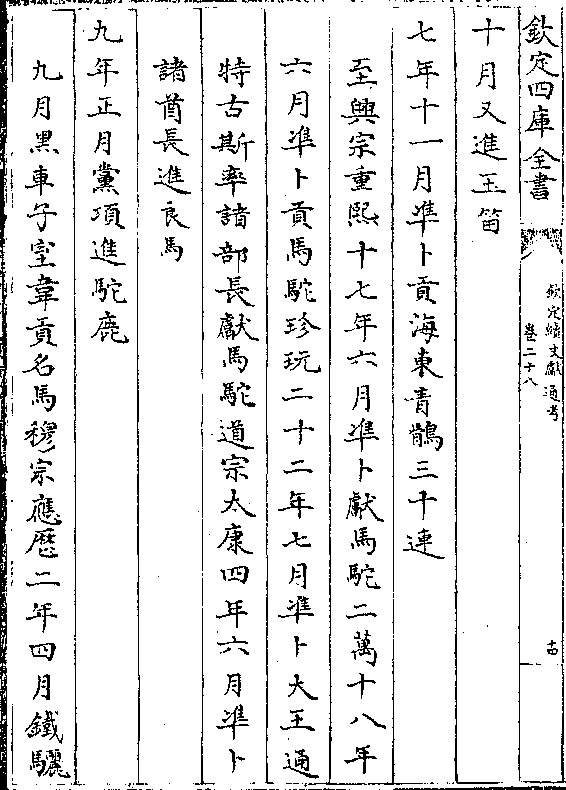 欽定四庫全書
欽定續文獻通考
卷二十八
十四
十月又進玉笛
七年十一月準卜貢海東青鶻三十連
至興宗重熙十七年六月準卜獻馬駝二萬十八年
六月準卜貢馬駝珍玩二十二年七月準卜大王通
特古斯率諸部長獻馬駝道宗太康四年六月準卜
諸酋長進良馬
九年正月黨項進駝鹿
九月黑車子室韋貢名馬穆宗應歷二年四月鐵驪